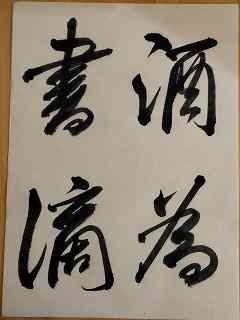 酒為
書滴